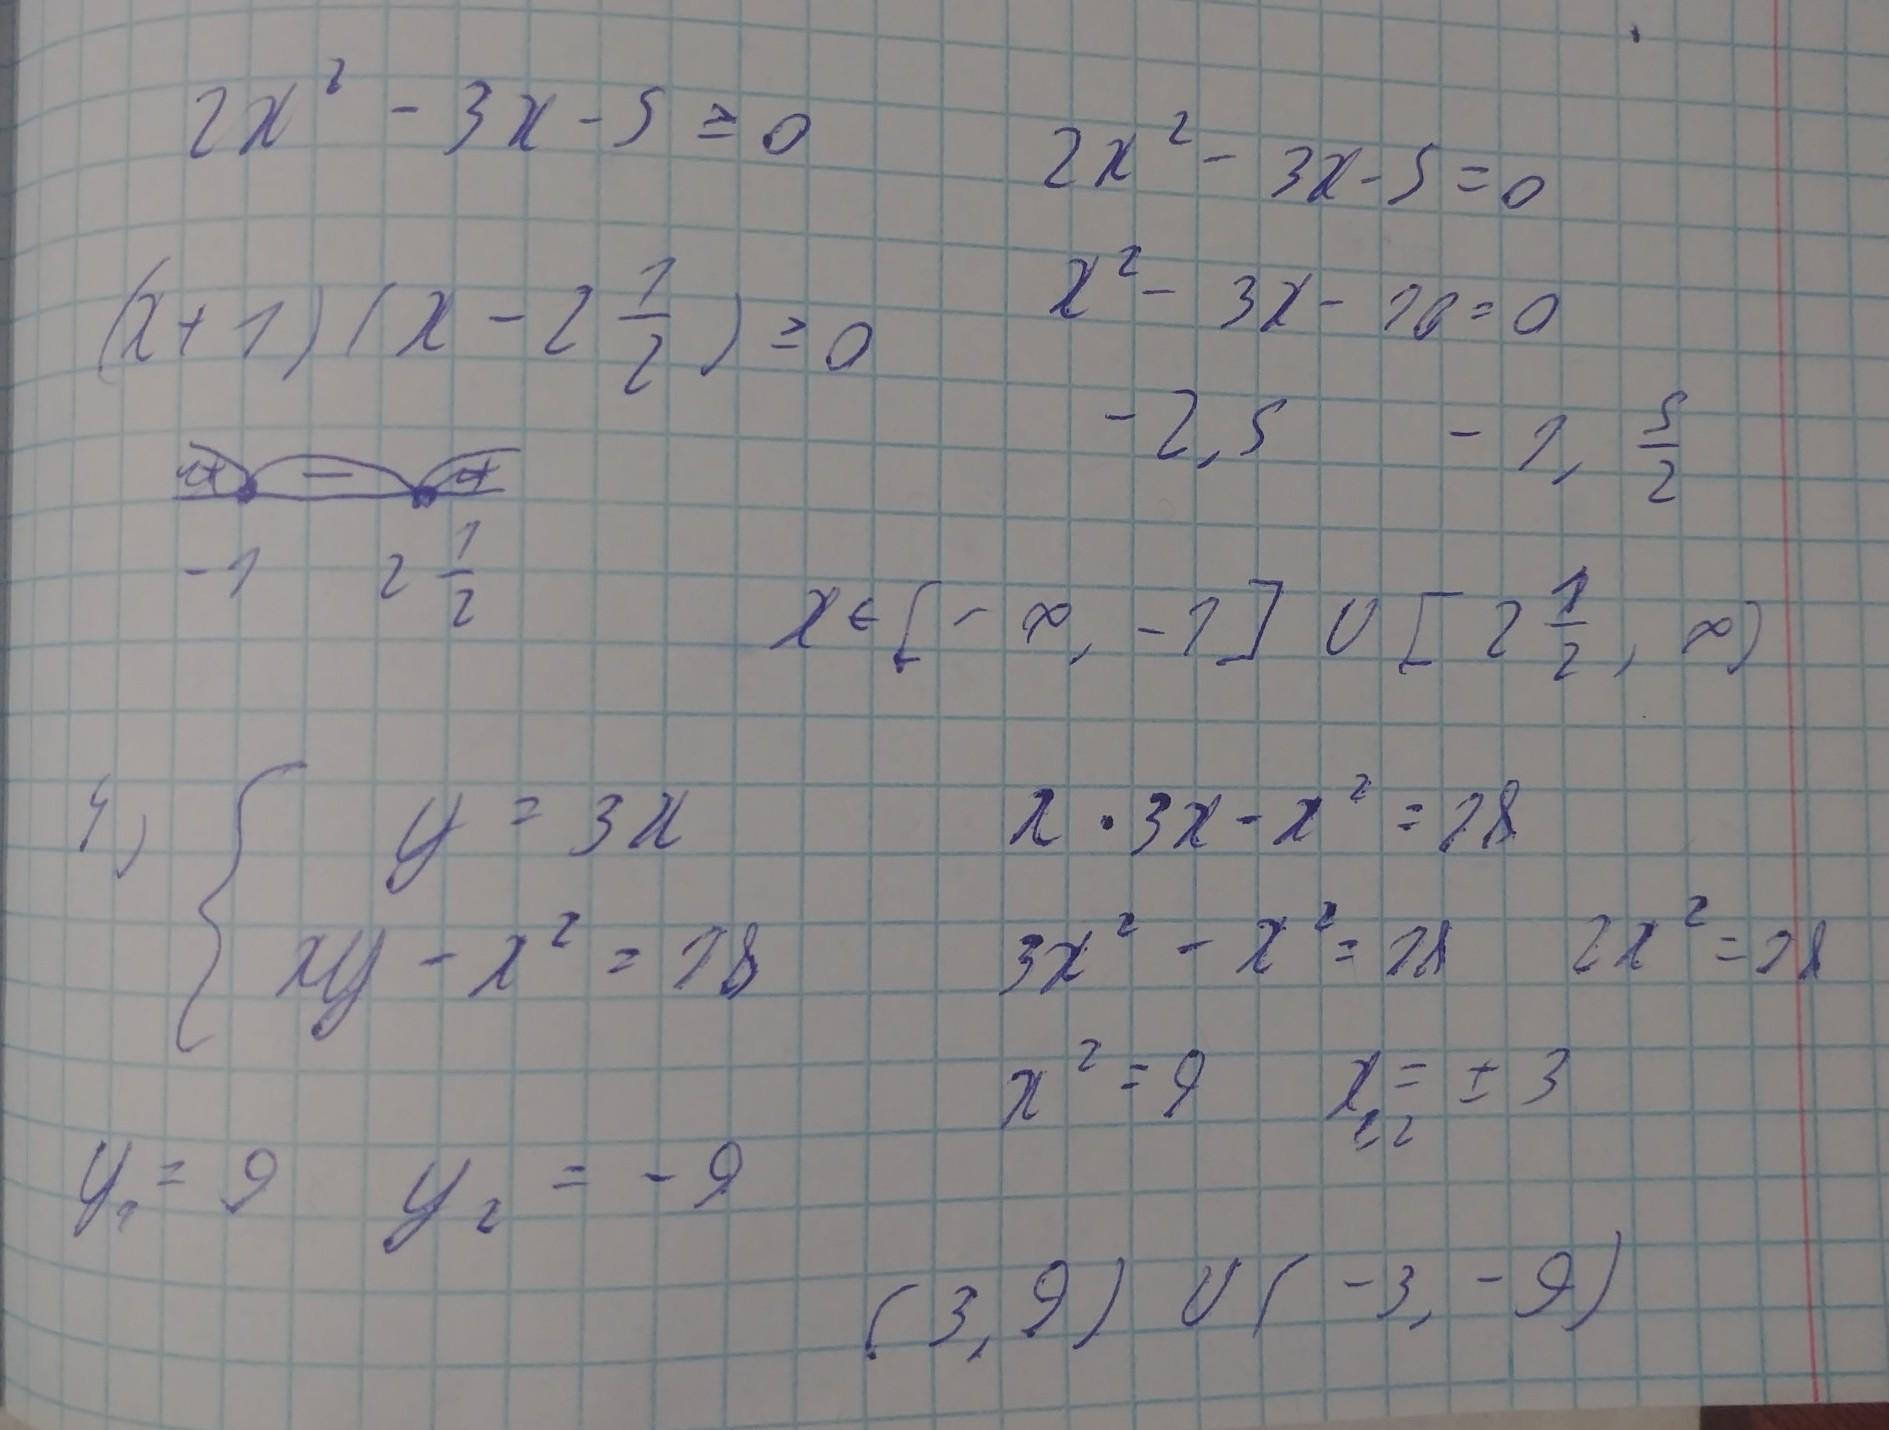 2x² - 3x - 5 ≥ 0
2x² - 3x - 5 = 0
(x + 1)(x - 2 1/2) ≥ 0
x² - 3x - 10 = 0
-2,5 -1, 5/2
+ - +
-1 2 1/2
x ∈ [-∞, -1] ∪ [2 1/2, ∞)
4) { y = 3x
xy - x² = 18
x · 3x - x² = 18
3x² - x² = 18 2x² = 18
x² = 9 x₁,₂ = ± 3
y₁ = 9 y₂ = -9
(3, 9) ∪ (-3, -9)